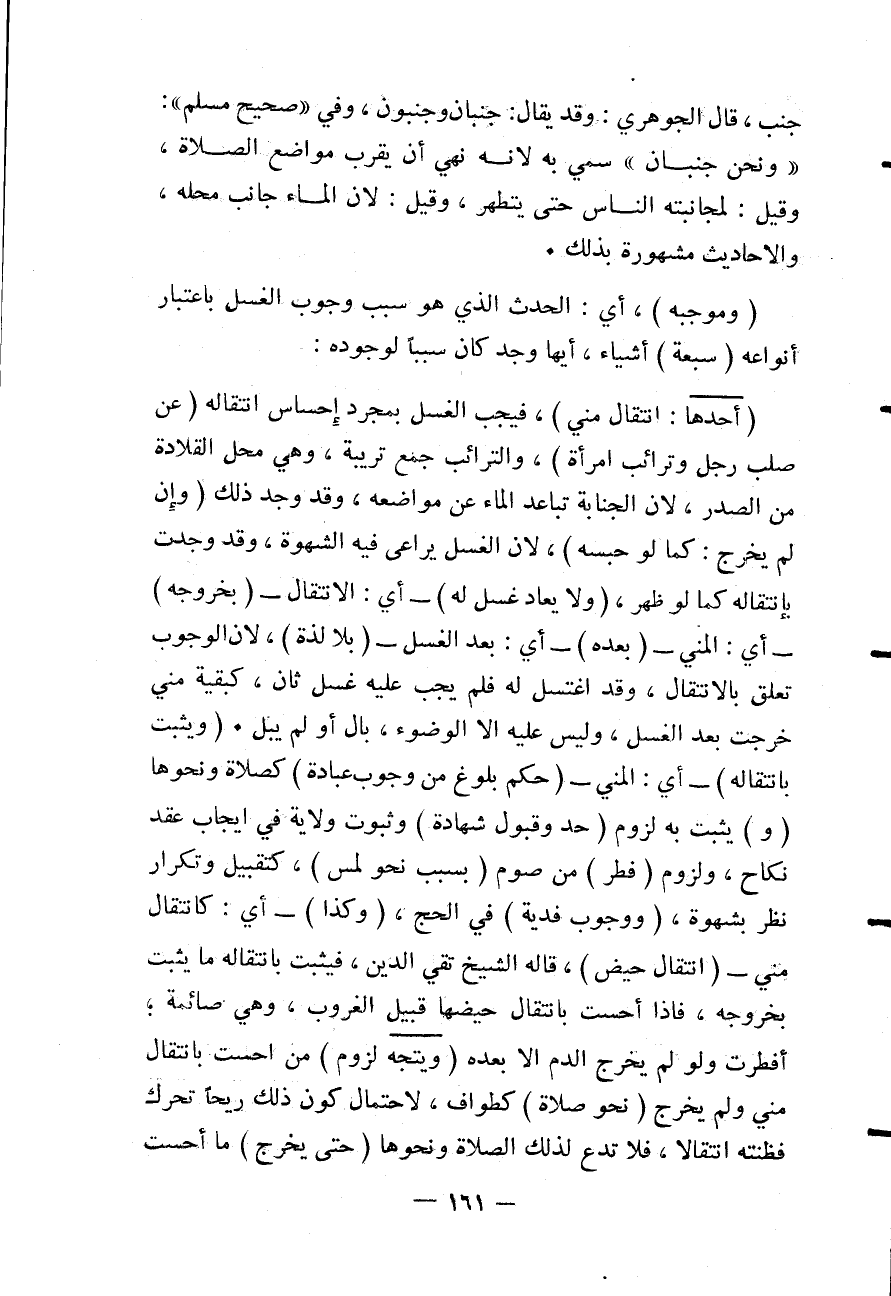 جنب ، قال الجوهري : وقد يقال: جنبان وجنبون ، وفي «صحيح مسلم»:
« ونحن جنبـان » سمي به لانـه نهي أن يقرب مواضع الصـلاة ،
وقيل : لمجانبته النـاس حتى يتطهر ، وقيل : لان المـاء جانب محله ،
والاحاديث مشهورة بذلك ٠
( وموجبه ) ، أي : الحدث الذي هو سبب وجوب الغسل باعتبار
أنواعه ( سبعة ) أشياء ، أيها وجد كان سبباً لوجوده :
( أحدها : انتقال مني ) ، فيجب الغسل بمجرد إحساس انتقاله ( عن
صلب رجل وترائب امرأة ) ، والترائب جمع تريبة ، وهي محل القلادة
من الصدر ، لان الجنابة تباعد الماء عن مواضعه ، وقد وجد ذلك ( وإن
لم يخرج : كما لو حبسه ) ، لان الغسل يراعى فيه الشهوة ، وقد وجدت
بإنتقاله كما لو ظهر ، ( ولا يعاد غسل له ) ــ أي : الانتقال ــ ( بخروجه )
ــ أي : المني ــ ( بعده ) ــ أي : بعد الغسل ــ ( بلا لذة ) ، لان الوجوب
تعلق بالانتقال ، وقد اغتسل له فلم يجب عليه غسل ثان ، كبقية مني
خرجت بعد الغسل ، وليس عليه الا الوضوء ، بال أو لم يبل ٠ ( ويثبت
بانتقاله ) ــ أي : المني ــ ( حكم بلوغ من وجوب عبادة ) كصلاة ونحوها
( و ) يثبت به لزوم ( حد وقبول شهادة ) وثبوت ولاية في ايجاب عقد
نكاح ، ولزوم ( فطر ) من صوم ( بسبب نحو لمس ) ، كتقبيل وتكرار
نظر بشهوة ، ( ووجوب فدية ) في الحج ، ( وكذا ) ــ أي : كانتقال
مني ــ ( انتقال حيض ) ، قاله الشيخ تقي الدين ، فيثبت بانتقاله ما يثبت
بخروجه ، فاذا أحست بانتقال حيضها قبيل الغروب ، وهي صائمة ؛
أفطرت ولو لم يخرج الدم الا بعده ( ويتجه لزوم ) من احست بانتقال
مني ولم يخرج ( نحو صلاة ) كطواف ، لاحتمال كون ذلك ريحاً تحرك
فظنته انتقالا ، فلا تدع لذلك الصلاة ونحوها ( حتى يخرج ) ما أحست
ــ ١٦١ ــ